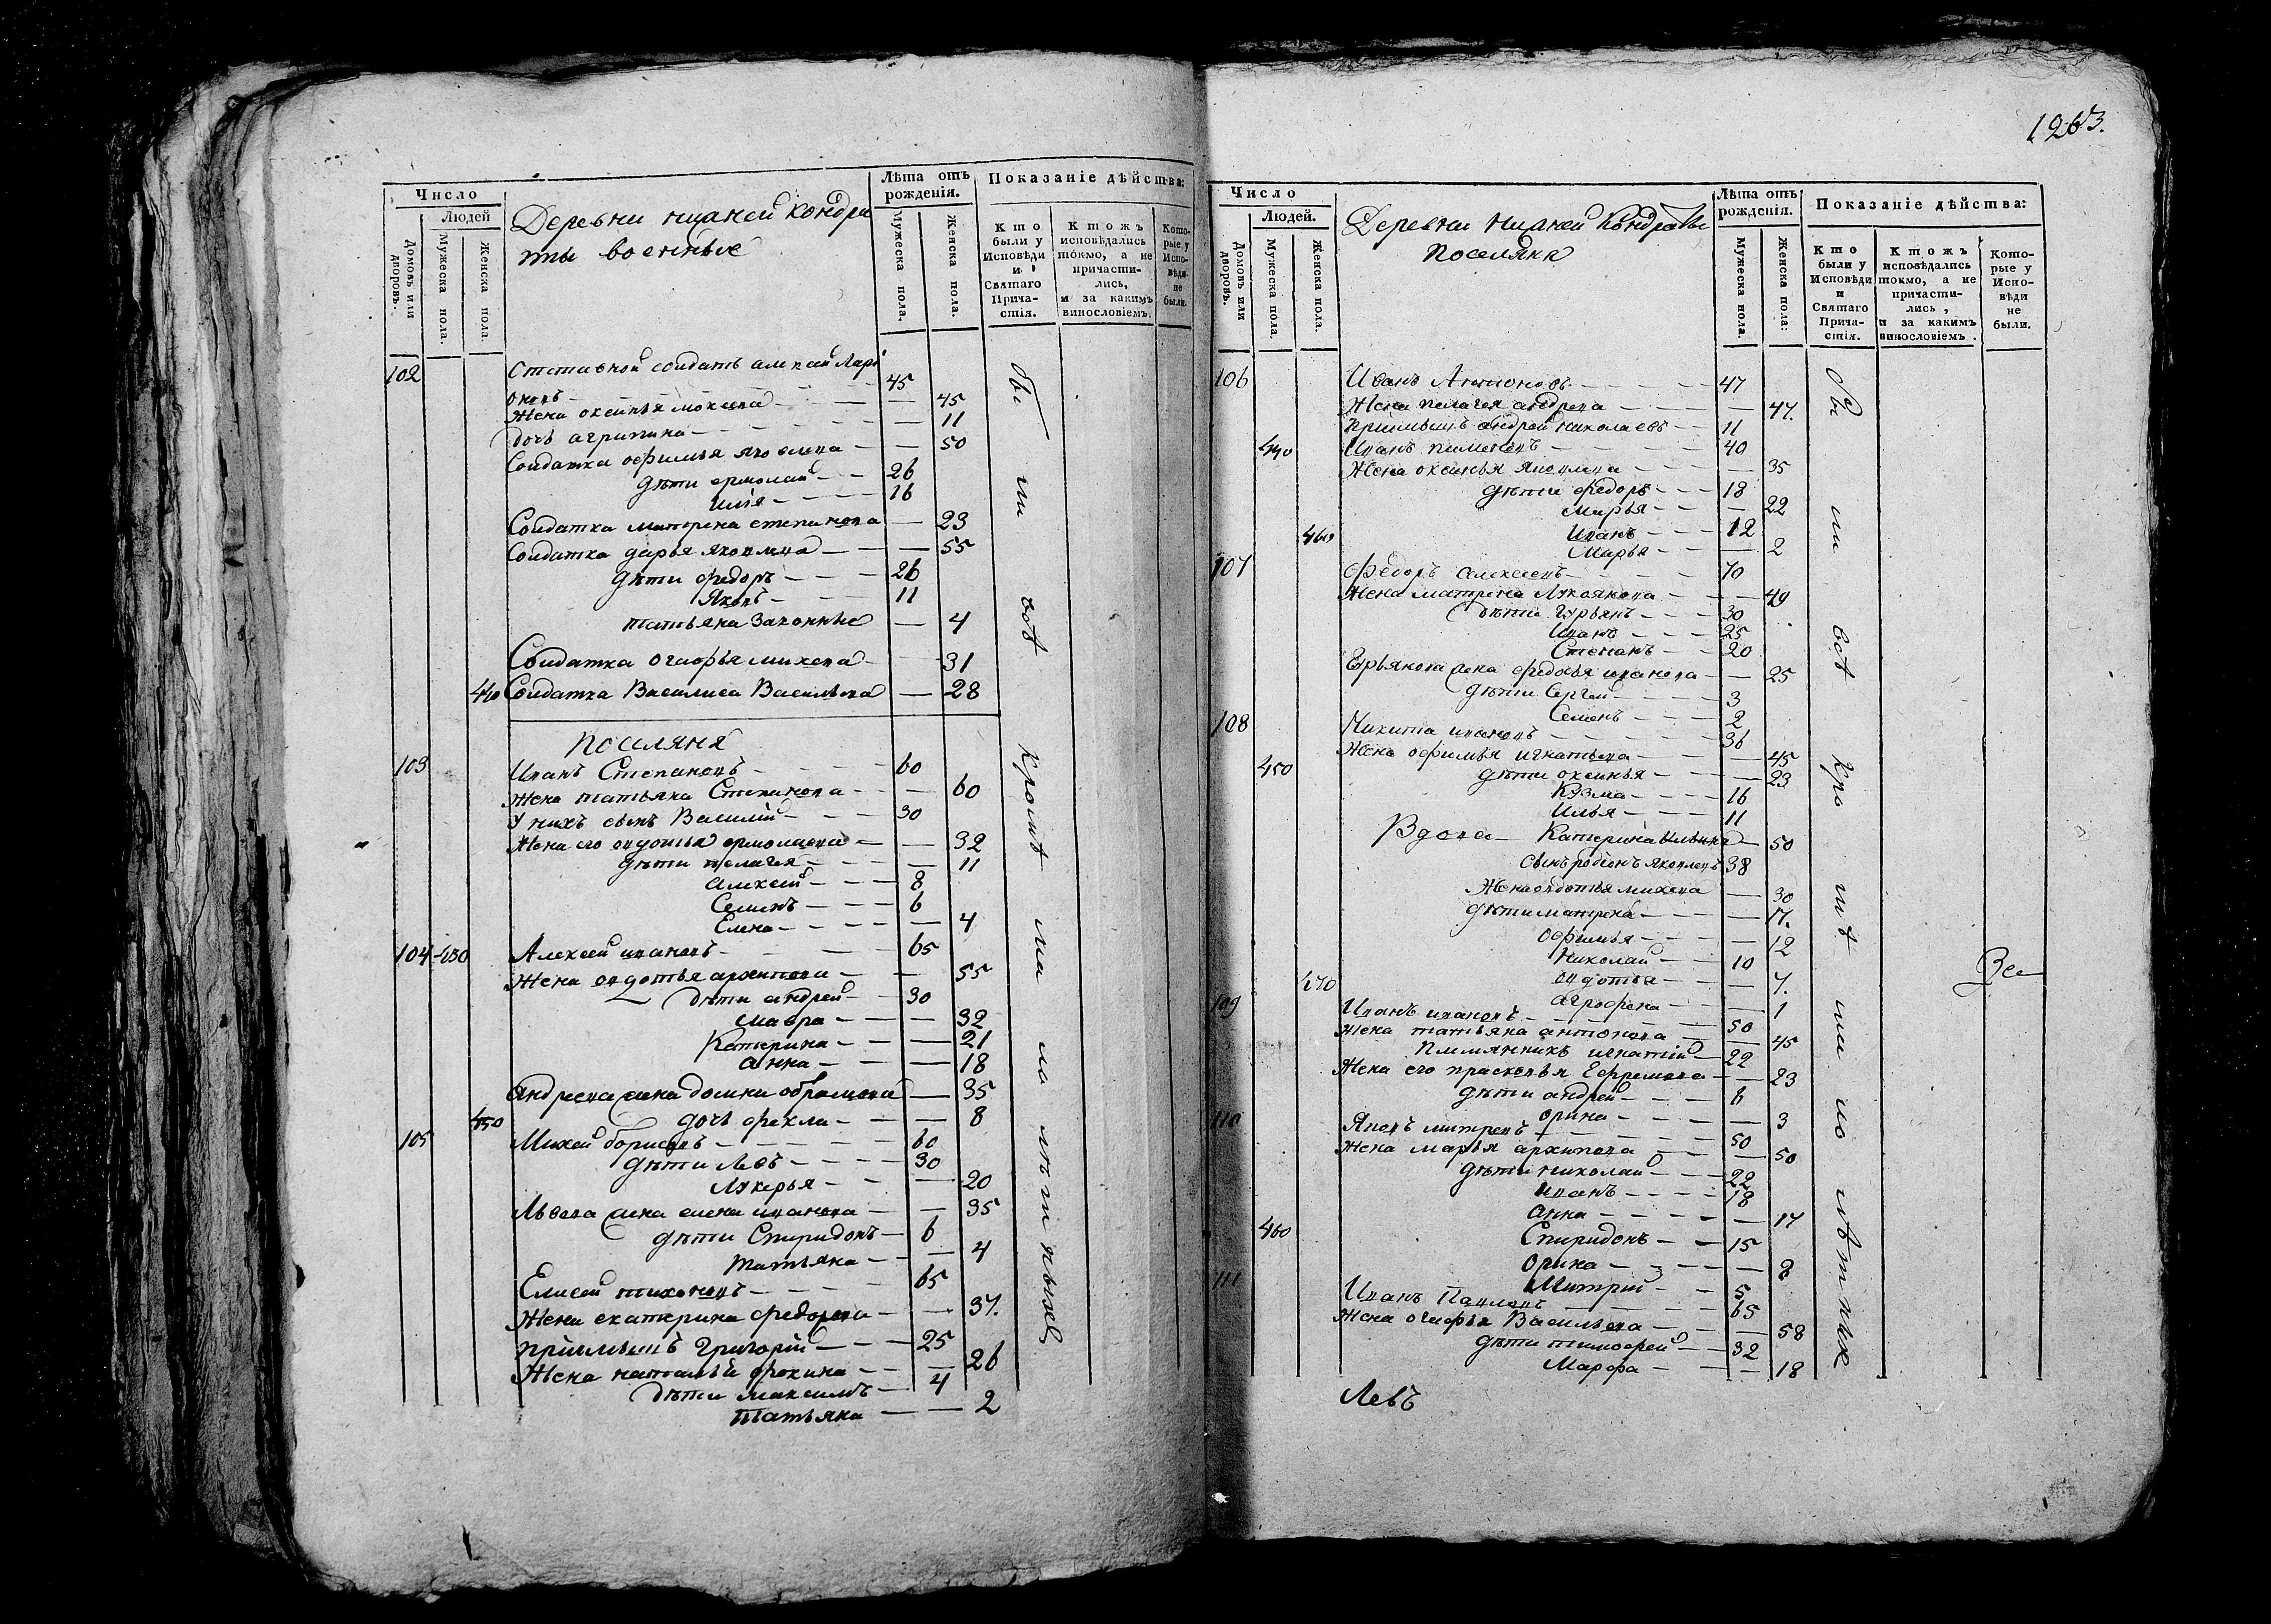 Число
Людей
Домовъ или дворовъ.
Мужеска пола.
Женска пола.
Деревни нижней кондра
ты военные
Лѣта отъ рожденія.
Мужеска пола.
Женска пола.
Показаніе дѣйства:
Кто были у Исповѣди и Святаго Прича-стія.
Ктожъ исповѣдались токмо, а не причасти-лись, и за какимъ винословіемъ.
Кото-рые у Испо-вѣди не были.
102 Отставной солдатъ алексей Лари
оновъ 45
Жена оксинья мокеева 45
дочь агрипина 11
Солдатка офимья яковлева 50
дѣти ермолай 26
илія 16
Солдатка матрена степанова 23
Солдатка дарья яковлева 55
дѣти федоръ 26
Яковъ 11
татьяна законные 4
Солдатка огафья михева 31
440 Солдатка Василиса Васильева 28
поселяня
103 Иванъ Степановъ 60
Жена татьяна Степанова 60
У нихъ сынъ Василий 30
Жена его овдотья ермолаева 32
дѣти пелагея 11
алексей 8
Семенъ 6
Елена 4
104 430 Алексей ивановъ 65
Жена овдотья архипова 55
дѣти андрей 30
мавра 32
Катерина 21
анна 18
андреева жена домна обрамова 35
450 дочь фекла 8
105 Михей борисовъ 60
дѣти Левъ 30
Лукерья 20
Львова жена елена иванова 35
дѣти Спиридонъ 6
татьяна 4
Елисей тихоновъ 65
Жена екатерина федорова 37.
приимышъ Григорій 25
Жена наталья фокина 26
дѣти максимъ 4
татьяна 2
бы ли всѣ кромѣ ма ло лѣт ныхъ
1263.
Число
Людей.
Домовъ или дворовъ.
Мужеска пола.
Женска пола.
Деревни нижней Кондраты
поселяня
Лѣта отъ рожденія.
Мужеска пола
Женска пола:
Показаніе дѣйства:
Кто были у Исповѣди и Святаго Прича-стія.
Ктожъ исповѣдались токмо, а не причасти-лись, и за какимъ винословіемъ.
Кото-рые у Испо-вѣди не были.
106 Иванъ Антоновъ 47
Жена пелагея андреева 47.
приимышъ андрей николаевъ 11
440 Иванъ пименовъ 40
Жена оксинья яковлева 35
дѣти федоръ 18
марья 22
460 Иванъ 12
Марья 2
107 Федоръ алексеевъ 70
Жена матрена Лукоянова 49
дѣти Гурьянъ 30
Иванъ 25
Степанъ 20
Гурьянова жена федосья иванова 25
дѣти Сергей 3
Семенъ 2
108 Никита ивановъ 36
Жена офимья игнатьева 45
450 дѣти оксинья 23
Кузма 16
Илья 11
Вдова Катерина ильина 50
сынъ родіонъ яковлевъ 38
Жена овдотья михева 30
дѣти матрена 17.
Офимья 12
Николай 10
470 овдотья 7.
агрофена 1
109 Иванъ ивановъ 50
Жена татьяна антонова 45
племянникъ игнатій 22
Жена его прасковья Ефремова 23
дѣти андрей 6
орина 3
110 Яковъ митревъ 50
Жена марья архипова 50
дѣти николай 22
иванъ 18
анна 17
460 Спиридонъ 15
орина 8
Митрій 5
111 Иванъ Павловъ 65
Жена огафья Васильева 58
дѣти тимофей 32
Марфа 18
бы ли всѣ кро мѣ ма ло лѣт нихъ
Левъ